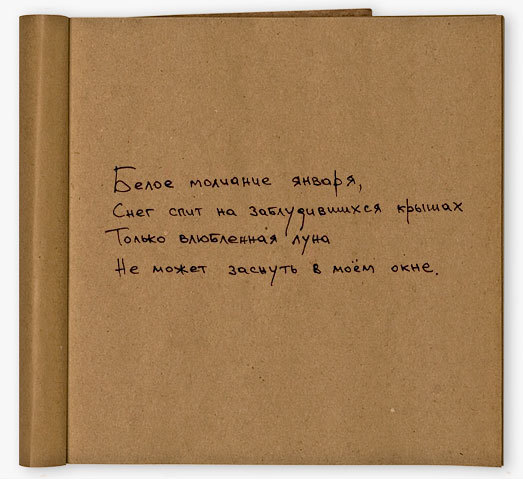 Белое молчание января,
Снег спит на заблудившихся крышах
Только влюбленная луна
Не может заснуть в моём окне.